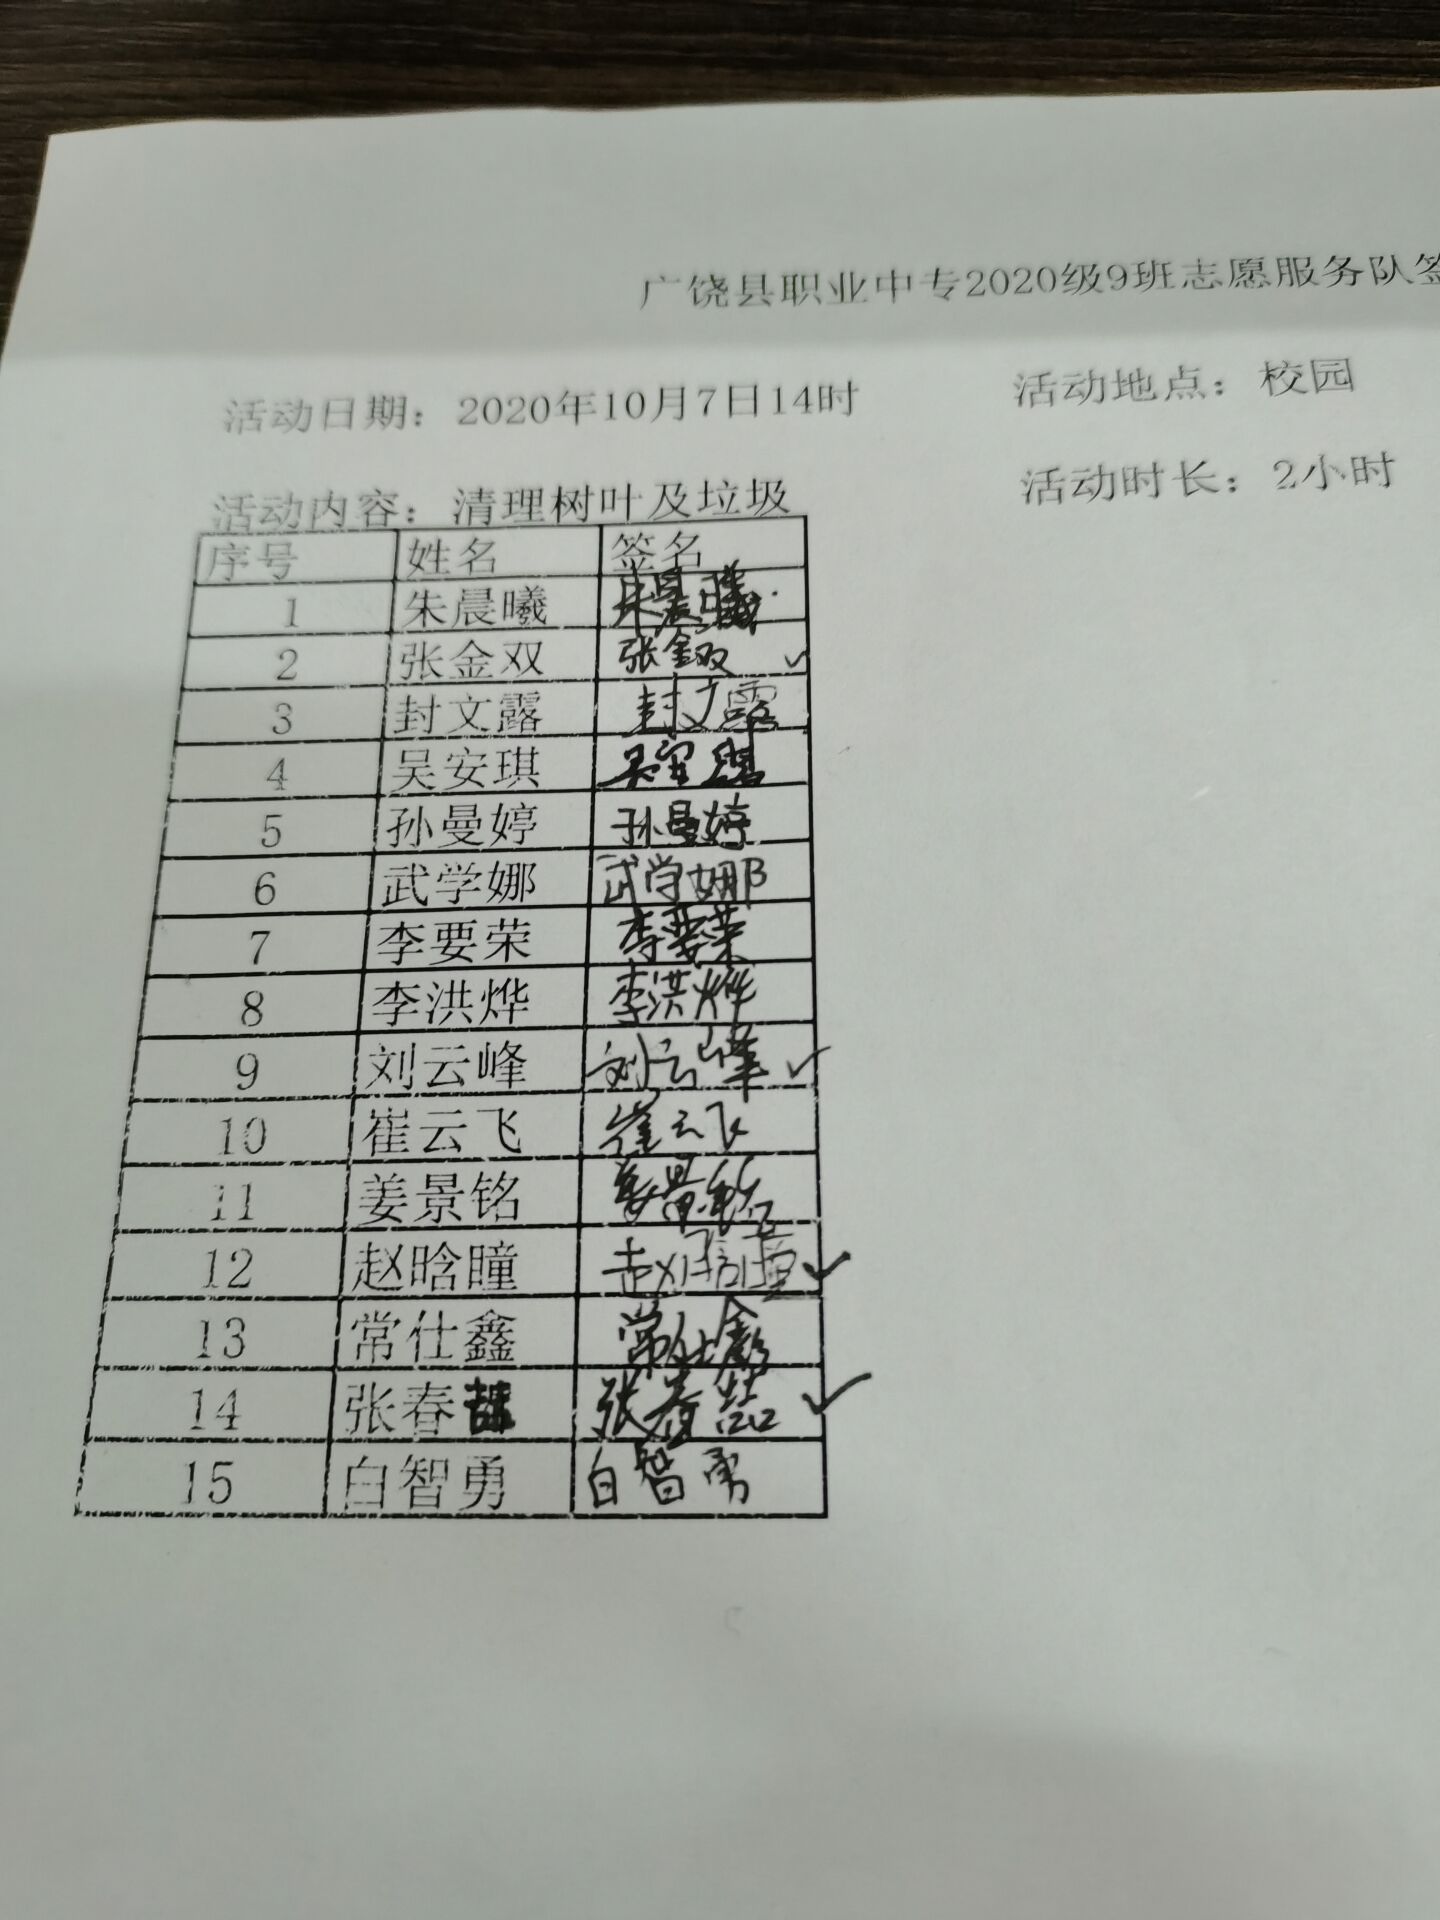 广饶县职业中专2020级9班志愿服务队签
活动日期：2020年10月7日14时 活动地点：校园
活动内容：清理树叶及垃圾 活动时长：2小时
序号 姓名 签名
1 朱晨曦 朱晨曦
2 张金双 张金双 ✓
3 封文露 封文露
4 吴安琪 吴安琪
5 孙曼婷 孙曼婷
6 武学娜 武学娜
7 李要荣 李要荣
8 李洪烨 李洪烨
9 刘云峰 刘云峰 ✓
10 崔云飞 崔云飞
11 姜景铭 姜景铭
12 赵晗瞳 赵晗瞳 ✓
13 常仕鑫 常仕鑫
14 张春喆 张春喆 ✓
15 白智勇 白智勇